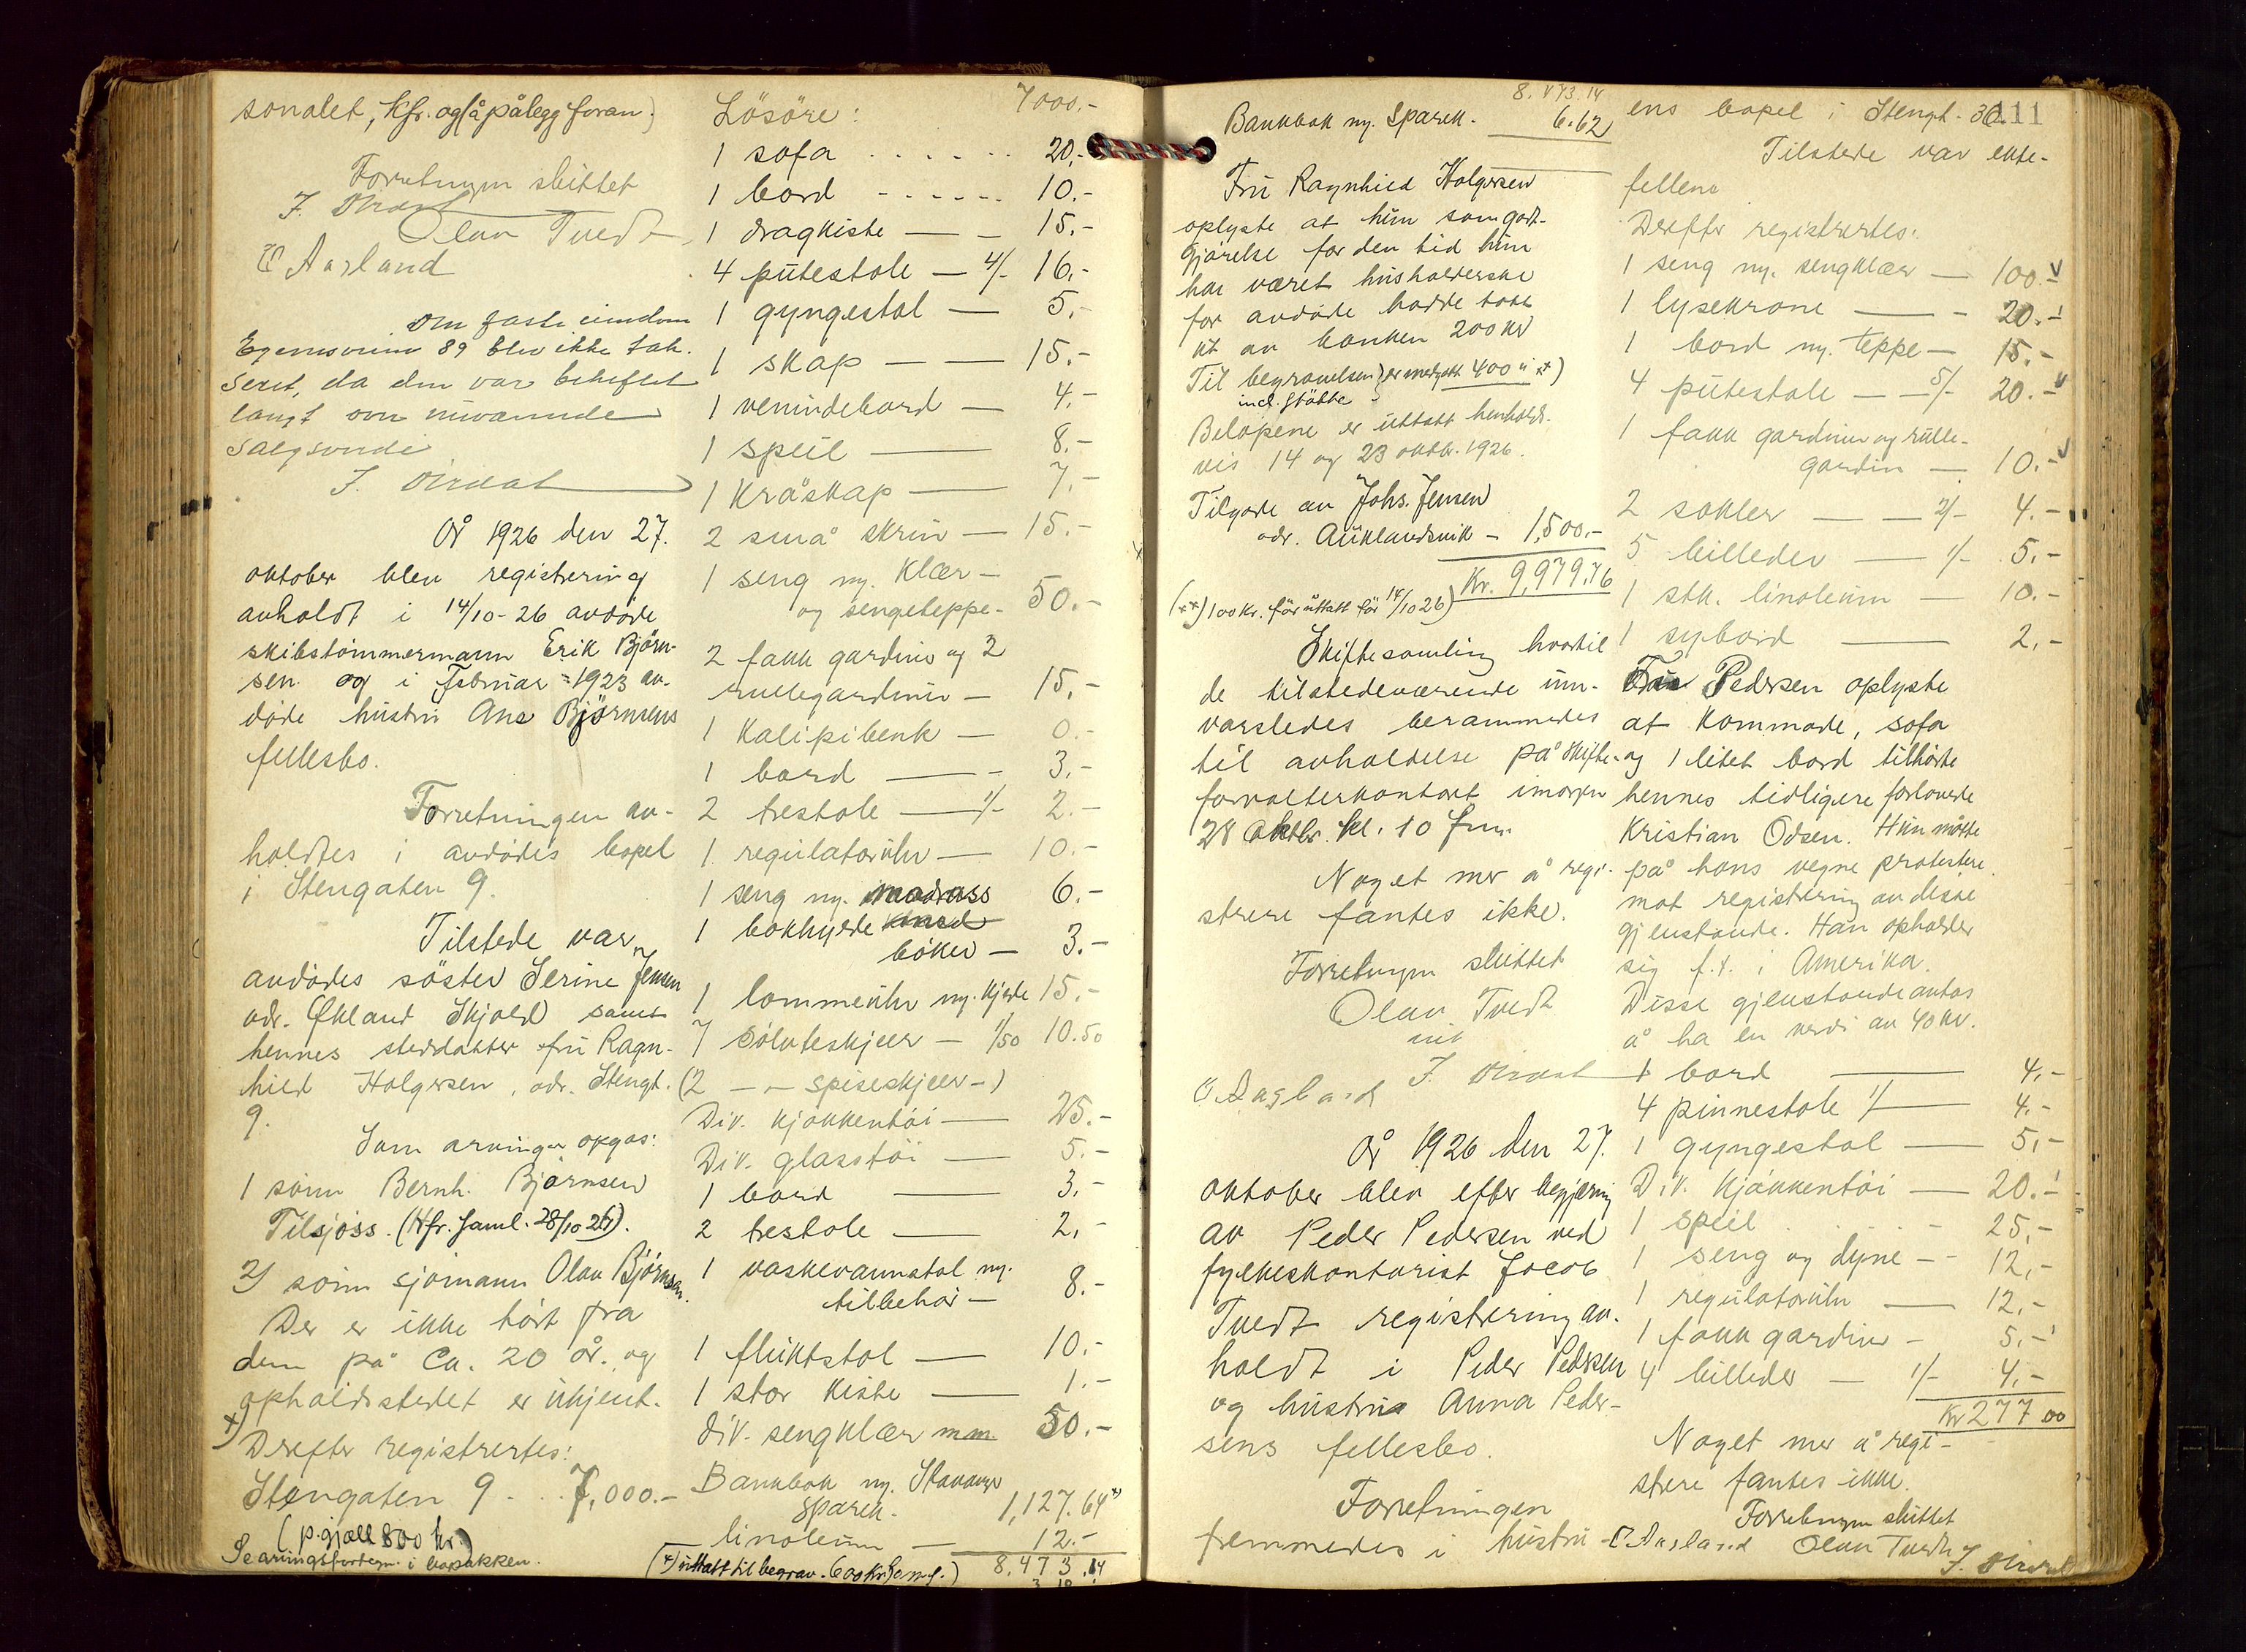 sonalet, kfr. også pålegg foran.)
Forretningen sluttet
Olav Tvedt
O Aasland
Den faste eiendom
89 blev ikke tak-
seret, da den var beheftet
langt over nuværende
salgsverdi
År 1926 den 27.
oktober blev registrering
avholdt i 14/10-26 avdøde
skibstømmermann Erik Bjørn-
sen og i Februar 1923 av-
døde hustru Ane Bjørnsens
fellesbo.
Forretningen av-
holdtes i avdødes bopel
i Stengaten 9.
Tilstede var
avdødes søster Serine Jensen
adr. Økland Skjold samt
hennes steddatter fru Ragn-
hild Holgersen, adr. Stengt.
9.
Som arvinger opgas:
1 sønn Bernh. Bjørnsen
Tilsjøss. (Kfr. saml. 28/10 26).
2) sønn sjømann Olav Bjørnsen.
Der er ikke hørt fra
dem på ca. 20 år, og
opholdsstedet er ukjent.
x) Derefter registrertes:
Stengaten 9 . . . 7,000.-
(p.gjæll 800 kr.)
Se arvingsfortegn. i bopakken.
Lösöre: 7000.-
1 sofa . . . . . . 20.-
1 bord - - - - - - 10.-
1 dragkiste — - 15.-
4 putestole — 4/- 16.-
1 gyngestol — 5.-
1 skap — — 15.-
1 venindebord — 4.-
1 speil — 8.-
1 kråskap — 7.-
2 små skrin — 15.-
1 seng m. klær -
og sengeteppe - 50.-
2 fakk gardiner og 2
rullegardiner - 15.-
1 kalipibenk — 0.-
1 bord — - 3.-
2 trestole — 1/- 2.-
1 regulatoruhr — 10.-
1 seng m. madrass 6.-
1 bokhylde
bøker — 3.-
1 lommeuhr m. kjede 15.-
7 sölvteskjeer — 1/50 10.50
(2 — " — spiseskjeer -)
Div. kjøkkentöi — 25.-
Div. glasstöi — 5.-
1 bord — 3.-
2 trestole — 2.-
1 vaskevannstol m.
tilbehör — 8.-
1 fluktstol — 10.-
1 stor kiste — 1.-
div. sengklær m.m. 50.-
Bankbok m. Stavanger
Sparek. 1,127.64 x)
linoleum — 12.-
(x) uttatt til begrav. 600 kr. 8,473.14
8.473.14
Bankbok m. Sparek. 6.62
Fru Ragnhild Holgersen
oplyste at hun som godt-
gjørelse for den tid hun
har været husholderske
for avdøde hadde tatt
ut av banken 200 kr
Til begravelsen er medgått 400 " xx)
incl. støtte
Beløpene er uttatt henholds-
vis 14 og 23 oktbr. 1926.
Tilgode av Johs. Jensen
adr. Auklandsvik - 1,500.-
Kr. 9,979.76
(xx) 100 kr. før uttatt før 14/10 26)
Skiftesamling hvortil
de tilstedeværende inn-
varsledes berammedes
til avholdelse på skifte-
forvalterkontoret imorgen
28 oktbr. kl. 10 fm.
Noget mer å regi-
strere fantes ikke.
Forretningen sluttet
Olav Tvedt
O Aasland
År 1926 den 27.
oktober blev efter begjæring
av Peder Pedersen ved
fylkeskontorist Jacob
Tvedt registrering av-
holdt i Peder Pedersen
og hustru Anna Peder-
sens fellesbo.
Forretningen
fremmedes i hustru-
111
ens bopel i Stengt. 30.
Tilstede var ekte-
fellene
Derefter registrertes:
1 seng m. sengklær — 100.-
1 lysekrone — - 20.-
1 bord m. teppe — 15.-
4 putestole — 5/- 20.-
1 fakk gardiner og rulle-
gardin — 10.-
2 sokler — 2/- 4.-
5 billeder — 1/- 5.-
1 stk. linoleum — 10.-
1 sybord — 2.-
Fru Pedersen oplyste
at kommode, sofa
og 1 litet bord tilhørte
hennes tidligere forlovede
Kristian Odsen. Hun måtte
på hans vegne protestere
mot registrering av disse
gjenstande. Han opholder
sig f.t. i Amerika.
Disse gjenstande antas
å ha en verdi av 40 kr.
1 bord — 4.-
4 pinnestole 1/- 4.-
1 gyngestol — 5.-
Div. kjøkkentöi — 20.-
1 speil . . . . . - 25.-
1 seng og dyne -- 12.-
1 regulatoruhr — 12.-
1 fakk gardiner - 5.-
4 billeder — 1/- 4.-
Kr 277 00
Noget mer å regi-
strere fantes ikke.
Forretningen sluttet
O Aasland Olav Tvedt